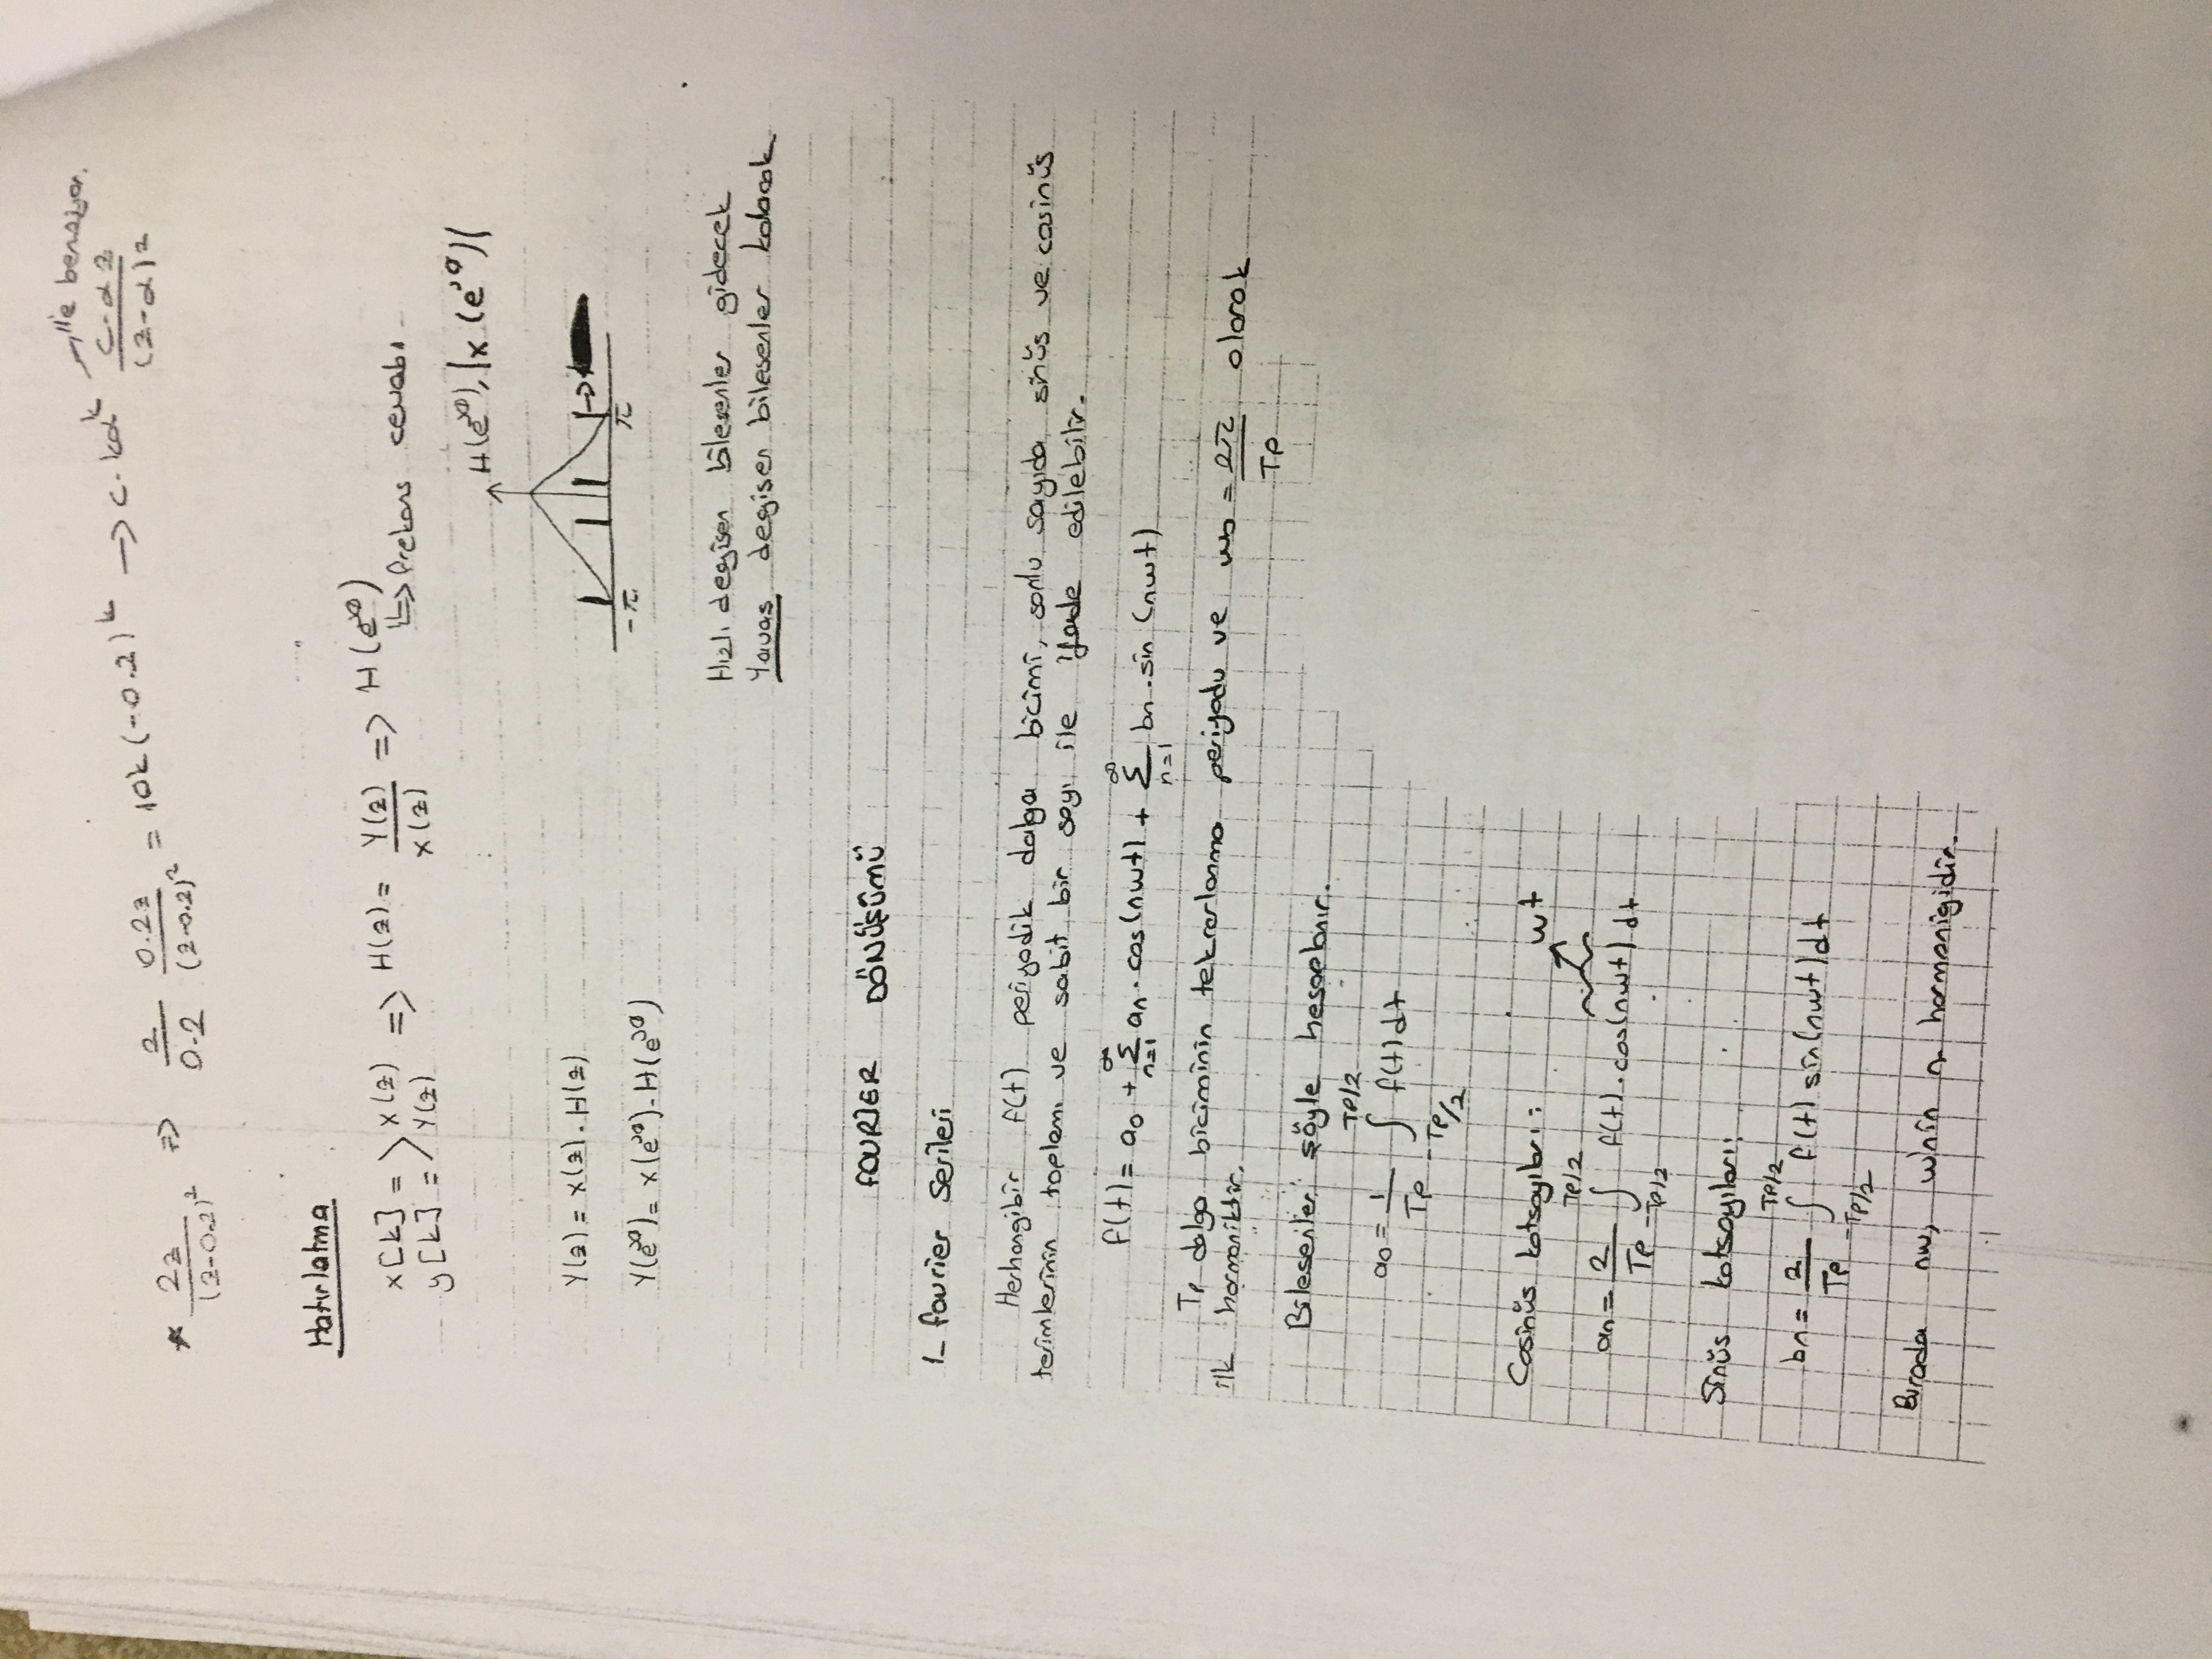 ile benziyor.
* 2z/(z-0.2)² => 2/0.2 0.2z/(z-0.2)² = 10k(-0.2)^k → c.kα^k c.αz/(z-α)²
Hatırlatma
x[k] = > X(z) => H(z) = Y(z)/X(z) => H(e^jθ)
y[k] = > Y(z) => frekans cevabı
H(e^jθ), |x(e^jθ)|
Y(z) = X(z).H(z)
-π π
Y(e^jθ) = X(e^jθ).H(e^jθ)
Hızlı degisen bilesenler gidecek
Yavas degisen bilesenler kalacak
FOURIER DÖNÜŞÜMÜ
1_ fourier Serileri
Herhangibir f(t) periyodik dalga bicimi, sonlu sayıda sinüs ve cosinüs
terimlerinin toplamı ve sabit bir sayı ile ifade edilebilir.
f(t) = a₀ + ∞Σn=1 an.cos(nwt) + ∞Σn=1 bn.sin(nwt)
Tp dalga biciminin tekrarlanma periyodu ve w₀ = 2π/Tp olarak
ilk harmoniktir.
Bilesenler şöyle hesaplanır.
a₀ = 1/Tp ∫ -Tp/2 Tp/2 f(t)dt
Cosinüs katsayıları:
wt
an = 2/Tp ∫ -Tp/2 Tp/2 f(t).cos(nwt)dt
Sinüs katsayıları:
bn = 2/Tp ∫ -Tp/2 Tp/2 f(t) sin(nwt)dt
Burada nw, w'nin n. harmonigidir.